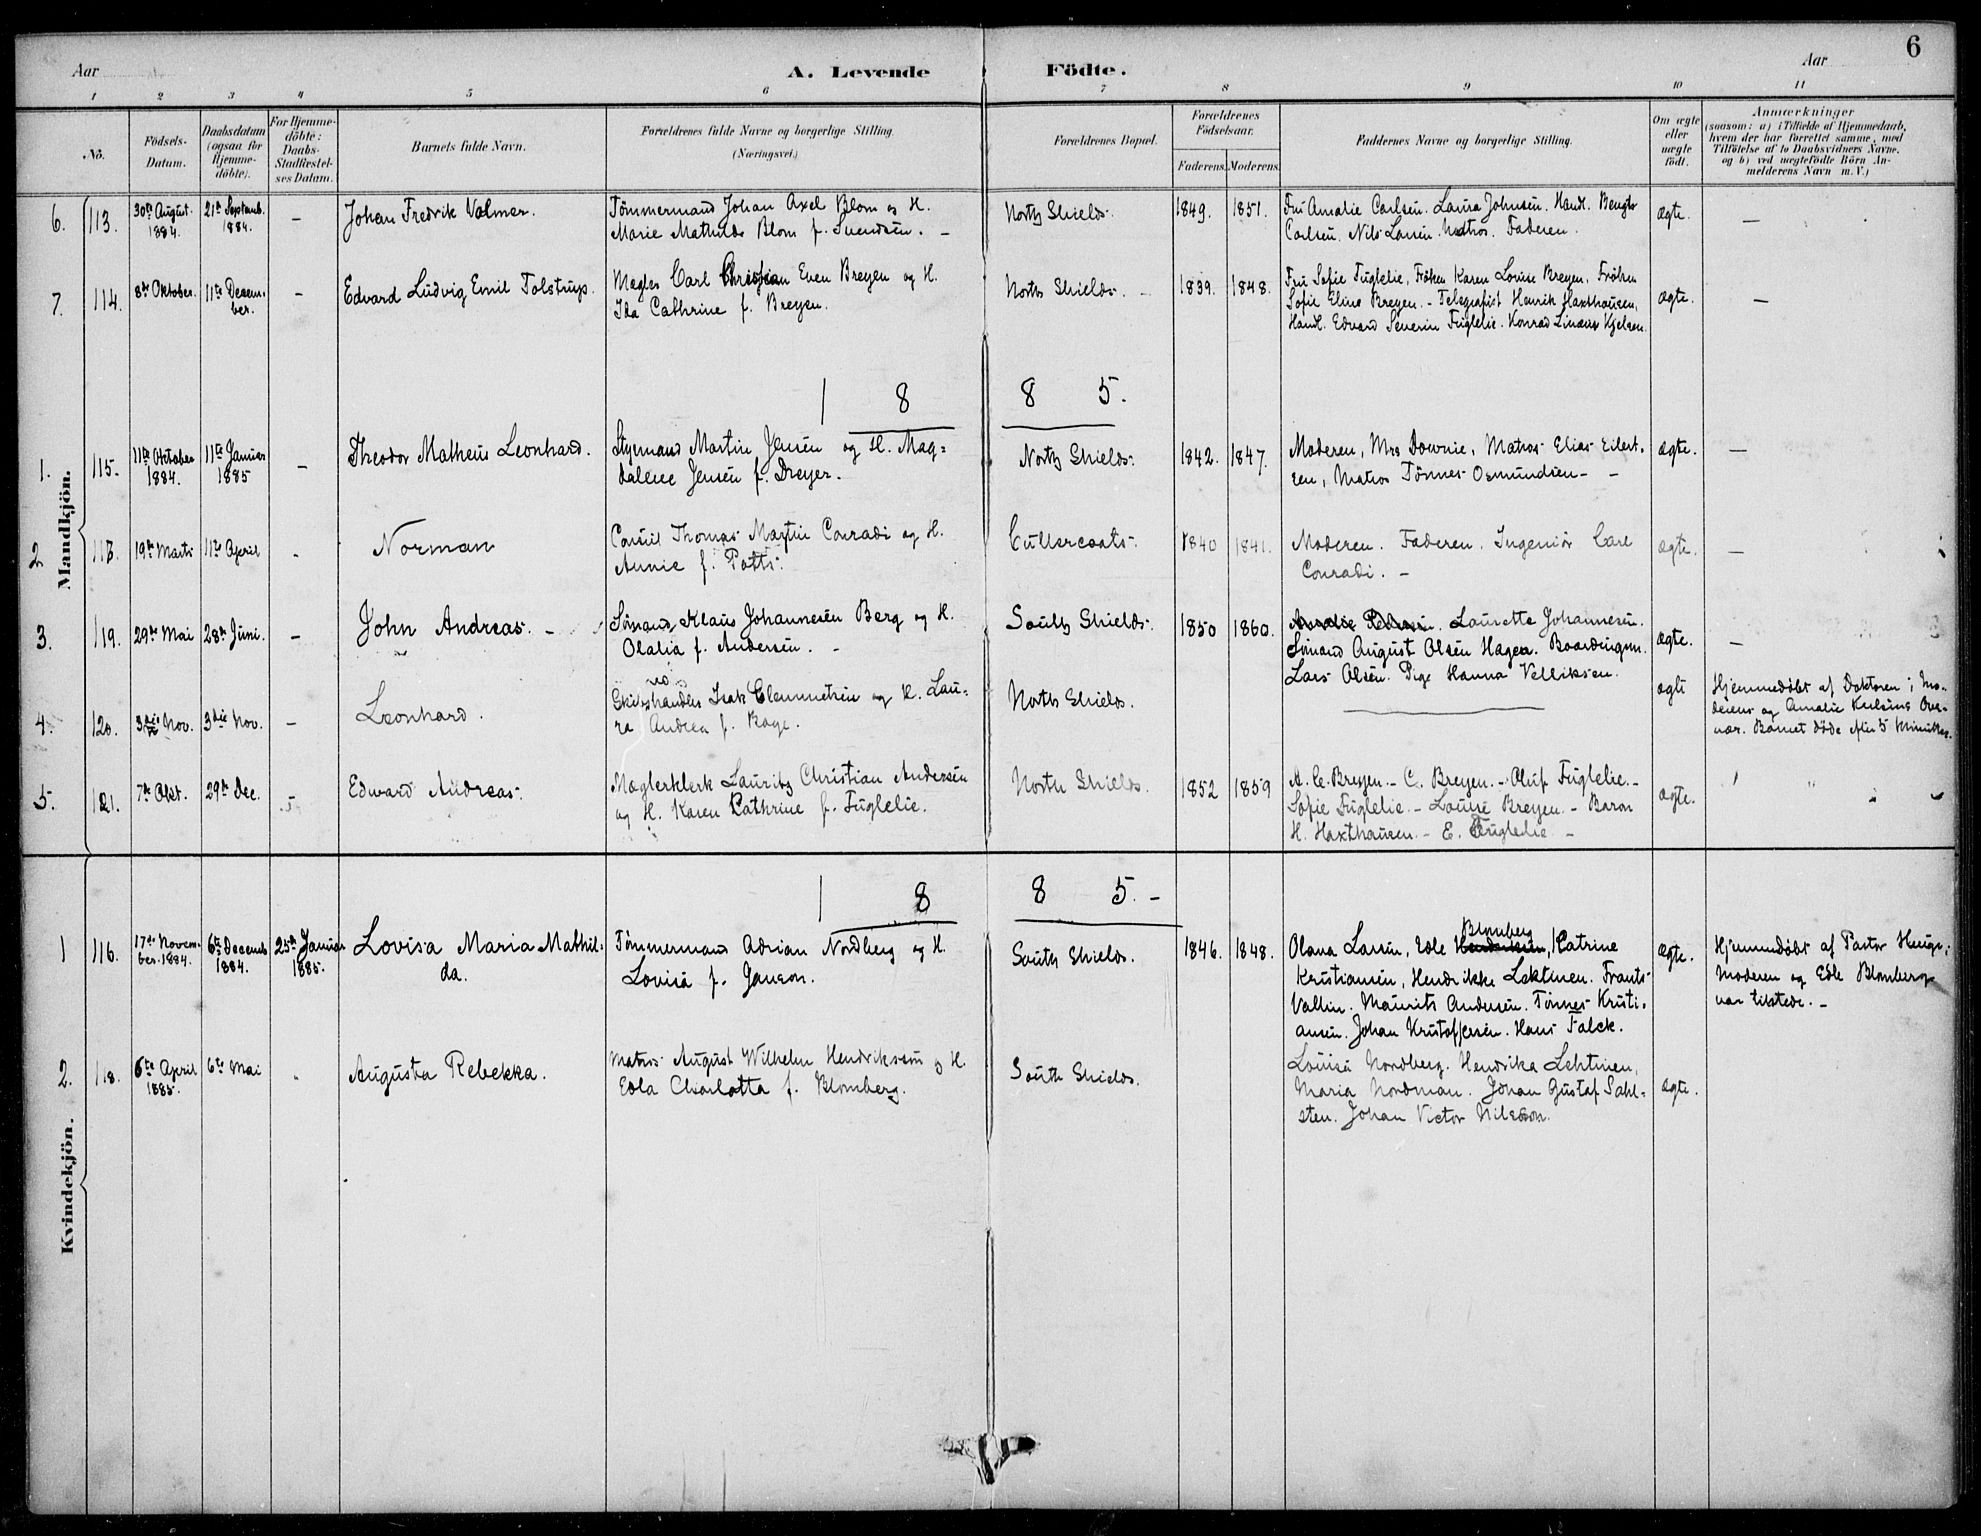 6
Aar
A. Levende Födte.
Aar
1 2 3 4 5 6 7 8 9 10 11
No.
Födsels-Datum.
Daabsdatum (ogsaa for Hjemme-döbte).
For Hjemme-döbte: Daabs-Stadfæstel-ses Datum.
Barnets fulde Navn.
Forældrenes fulde Navne og borgerlige Stilling.
(Næringsvei.)
Forældrenes Bopæl.
Forældrenes Födselsaar.
Faderens. Moderens.
Faddernes Navne og borgerlige Stilling.
Om ægte eller uægte födt.
Anmærkninger
(saasom: a) i Tilfælde af Hjemmedaab, hvem der har forrettet samme, med Tilföielse af to Daabsvidners Navne. og b) ved uægtefödte Börn An-melderens Navn m. V.)
6. 113. 30te August. 1884. 21de Septemb. 1884. – Johan Fredrik Valmer.
Tömmermand Johan Axel Blom og H.
Marie Mathilde Blom f. Svendsen. –
North Shields. 1849. 1851.
Fru Amalie Carlsen. Laura Johnsen. Handl. Bengto
Carlsen. Nils Larsen. Matros. Faderen.
ægte. –
7. 114. 8de Oktober. 11te Decem-ber. – Edvard Ludvig Emil Tolstrup.
Megler Carl Christian Even Breyen og H.
Ida Cathrine f. Breyen.
North Shields. – 1839. 1848.
Fru Sofie Fuglelie, Fröken Karen Louise Breyen, Fröken
Sofie Elise Breyen. – Telegrafist Henrik Haxthausen,
Handl. Edvard Severin Fuglelie. Konrad Linæus Kjelsen.
ægte. –
1 8 8 5.
Mandkjön.
1. 115. 11te Oktober 1884. 11te Januar 1885 – Theodor Matheus Leonhard.
Styrmand Martin Jensen og H. Mag=
dalene Jensen f. Dreyer.
North Shields. 1842. 1847.
Moderen, Mrs Downie, Matros Elias Eilert-
sen, Matros Tönnes Osmundsen – –
ægte. –
2 117. 19de Marts 11te April - Norman
Consul Thomas Martin Conradi og H.
Annie f. Potts.
Cullercoats. 1840 1841.
Moderen. Faderen. Ingeniör Carl
Conradi. –
ægte. –
3. 119. 29de Mai 28de Juni. – John Andreas. –
Sömand Klaus Johannesen Berg og H.
Olalia f. Andersen. –
South Shields. 1850 1860.
Laurette Johannesen.
Sömand August Olsen Hagen. Boardingsm.
Lars Olsen. Pige Hanna Velliksen.
ægte. –
4. 120. 3die Nov. 3die Nov. – Leonhard.
Skibshandler Isak Clemmetsen og H. Lau=
ra Andrea f. Bøge.
North Shields.
ægte
Hjemmedöbt af Doktoren i Mo-
derens og Amalie Overs
vær. Barnet döde efter 5 Minutter.
5. 121. 7de Okt. 29de Dec. – Edward Andreas.
Meglerklerk Lauritz Christian Andersen
og H. Karen Cathrine f. Fuglelie.
North Shields. 1852 1859
A. C. Breyen. – C. Breyen. – Oluf Fuglelie. –
Sofie Fuglelie. – Louise Breyen. – Baron
H. Haxthausen. – E. Fuglelie. –
ægte.
1 8 8 5. –
Kvindekjön.
1 116. 17de Novem-ber. 1884. 6te Decemb 1884. 25de Januar 1885. Lovisa Maria Mathil=
da.
Tömmermand Adrian Nordberg og H.
Lovisa f. Janson.
South Shields. 1846. 1848.
Olava Larsen, Edle Hendriksen, Blomberg Katrine
Kristiansen, Hendrikke Lektinen. Frants
Vallin. Maurits Andersen. Tönnes Kristi-
ansen. Johan Kristoffersen. Hans Falck.
ægte.
Hjemmedöbt af Pastor Heuge;
Moderen og Edle Blomberg
var tilstede. –
2. 118. 6te April 1885. 6te Mai - Augusta Rebekka.
Matros August Wilhelm Hendriksson og H.
Edla Charlotta f. Blomberg.
South Shields.
Louisa Nordberg. Hendrika Lehtinen,
Maria Nordman. Johan Gustaf Sahl=
sten. Johan Victor Nilsson.
ægte.